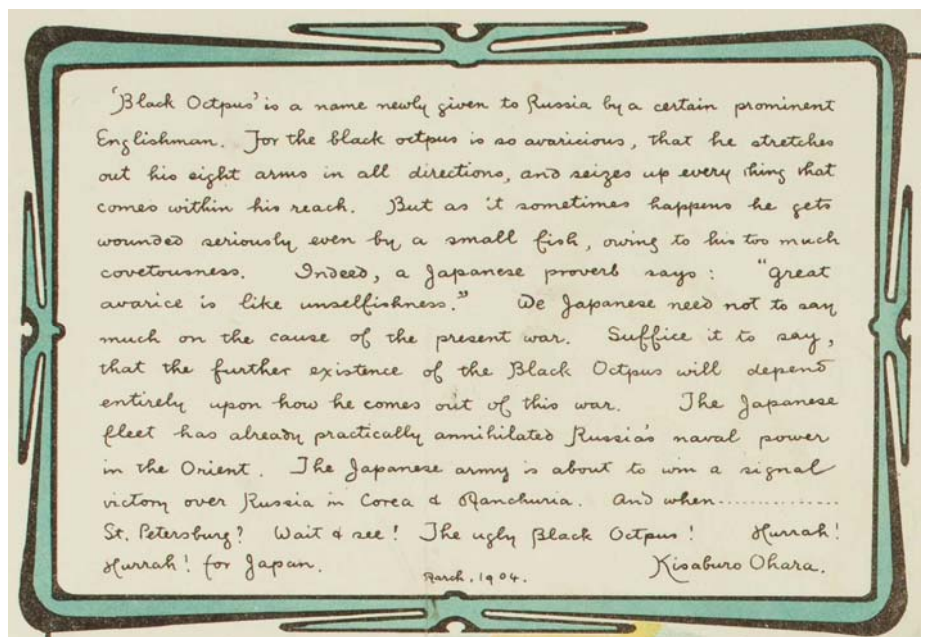 'Black Octpus' is a name newly given to Russia by a certain prominent
Englishman. For the black octpus is so avaricious, that he stretches
out his eight arms in all directions, and seizes up every thing that
comes within his reach. But as it sometimes happens he gets
wounded seriously even by a small fish, owing to his too much
covetousness. Indeed, a Japanese proverb says: "Great
avarice is like unselfishness." We Japanese need not to say
much on the cause of the present war. Suffice it to say,
that the further existence of the Black Octpus will depend
entirely upon how he comes out of this war. The Japanese
fleet has already practically annihilated Russia's naval power
in the Orient. The Japanese army is about to win a signal
victory over Russia in Corea & Manchuria. And when..............
St. Petersburg? Wait & see! The ugly Black Octpus! Hurrah!
Hurrah! for Japan. Kisaburo Ohara.
March, 1904.